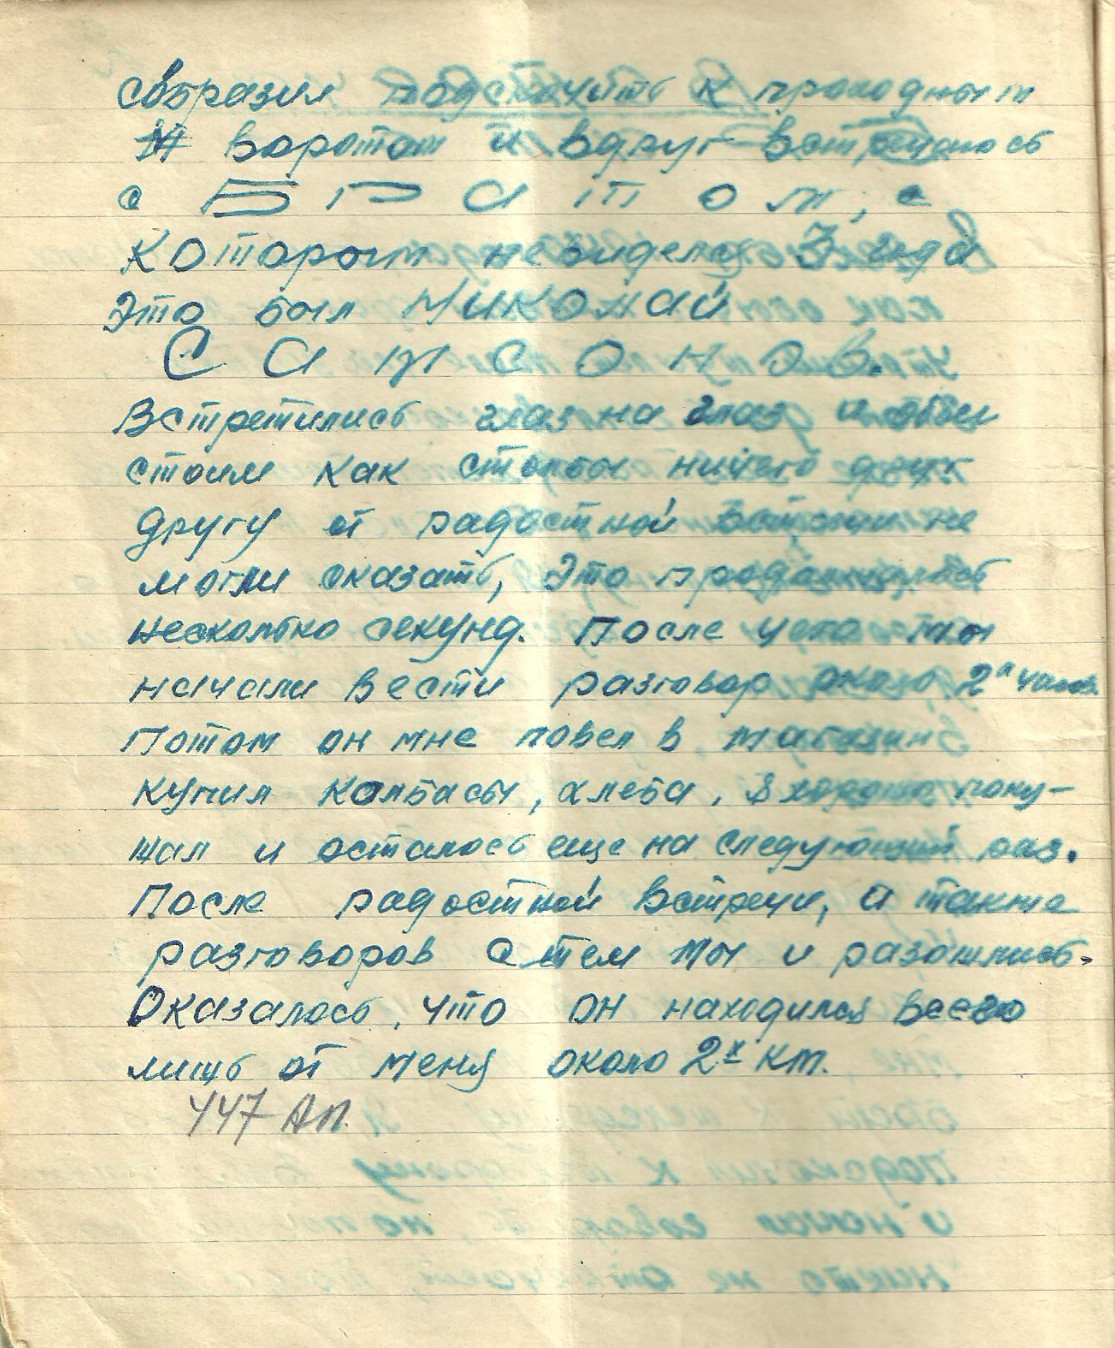 образил подсточить к проходным
воротам и вдруг встретилось
с Б Р а т о м, с
которым не виделся 3 года
Это был Николай
С а м с о н о в.
Встретились глаз на глаз и обои
стоим как столбы ничего друг
другу от радостной встречи не
могли сказать, Это продолжалось
несколько секунд. После чего мы
начали вести разговор около 2х часов.
Потом он мне повел в магазин
купил калбасы, хлеба, я хорошо поку-
шал и осталось еще на следующий раз.
После радостной встречи, а также
разговоров с тем мы и разошлись.
Оказалось, что он находился всего
лишь от меня около 2х км.
447 Ап.